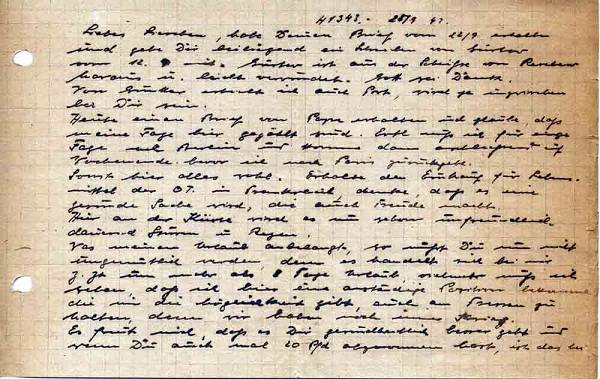 41343. - 28/9 43.
Liebes , habe Deinen Brief vom 22/9 erhalten
und gebe Dir beiliegend ein Schreiben von Günter
vom 12. 9 mit. Günter ist aus der Schlappe von
heraus u. leicht verwundet. Gott sei Dank.
Von Günter ich auch Post, wird ja inzwischen
bei Dir sein.
Heute einen Brief von erhalten und glaube, daß
meine Tage hier gezählt sind. Evtl muß ich für einige
Tage nach Berlin und komme dann anschliessend
Wochenende bevor ich nach Paris zurückgehe.
Sonst hier alles wohl. Erhalte den Einkauf für Lebens-
mittel der OT. in Frankreich, denke, daß es eine
gesunde Sache wird, die auch Freude macht.
Hier an der Küste wird es nun schon unfreundlich
dauernd Sturm u. Regen.
Was meinen Urlaub anbelangt, so mußt Du nun nicht
ungemütlich werden, denn es handelt sich bei mir
z. Zt. um mehr als 8 Tage Urlaub, muß ich
sehen, daß ich hier eine anständige bekomme
die mir die Möglichkeit gibt, auch an zu
halten, denn wir haben noch immer Krieg.
Es freut mich, daß es Dir gesundheitlich besser geht und
wenn Du auch mal 20 Pfd abgenommen hast, ist das bei